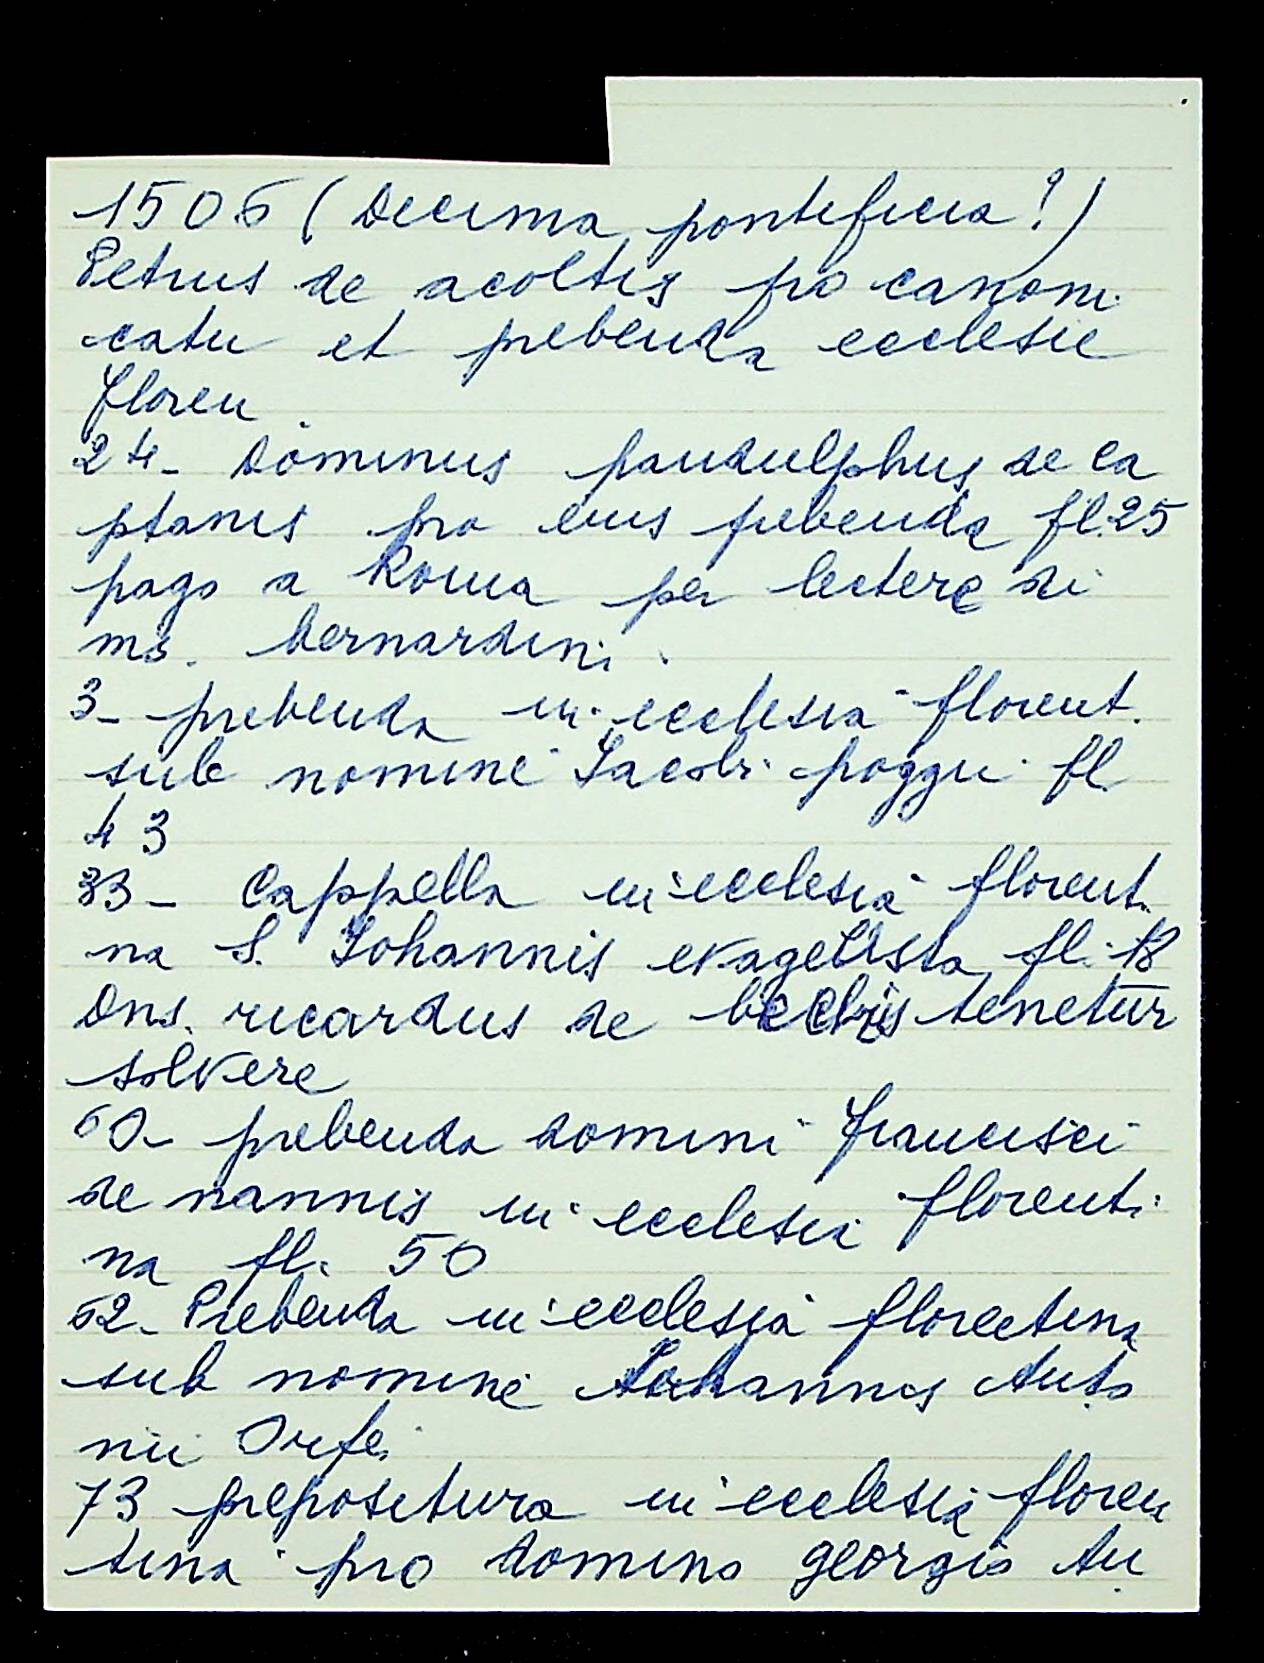 1506 (Decima pontificia?)
Petrus de acoltis pro canoni
catu et prebenda ecclesie
floren.
24- Dominus pandulphus de ca
ptanis pro eius prebenda fl. 25
pago a Roma per lectere di
ms. bernardini.
3- prebenda in ecclesia florent.
sub nomine Iacobi poggii fl
43
33- Cappella in ecclesia florenti
na S. Iohannis evagelista fl. 18
Dns. ricardus de bechis tenetur
solvere
60- prebenda domini francisci
de nannis in ecclesia florenti
na fl. 50
62- Prebenda in ecclesia florectina
sub nomine Iohannis Anto
nii Orfei
73 prepositura in ecclesia floren
tina pro domino georgio An